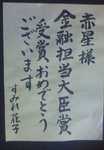 赤星様
金融担当大臣賞
受賞おめでとう
ございます
すみれ 花子